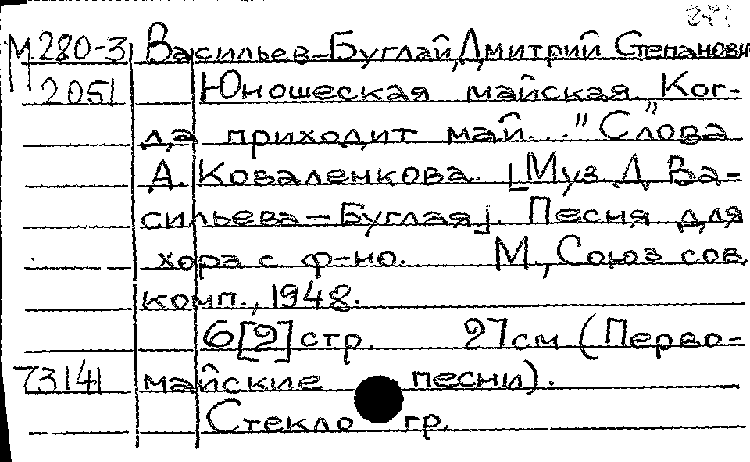 М280-3 Васильев-Буглай, Дмитрий Степанови
2051 Юношеская майская "Ког-
да приходит май..." Слова
А. Коваленкова. [Муз. Д. Ва-
сильева-Буглая]. Песня для
хора с ф-но. М., Союз сов.
комп., 1948.
6[2] стр. 27см (Перво-
73141 майские песни).
Стекло гр.